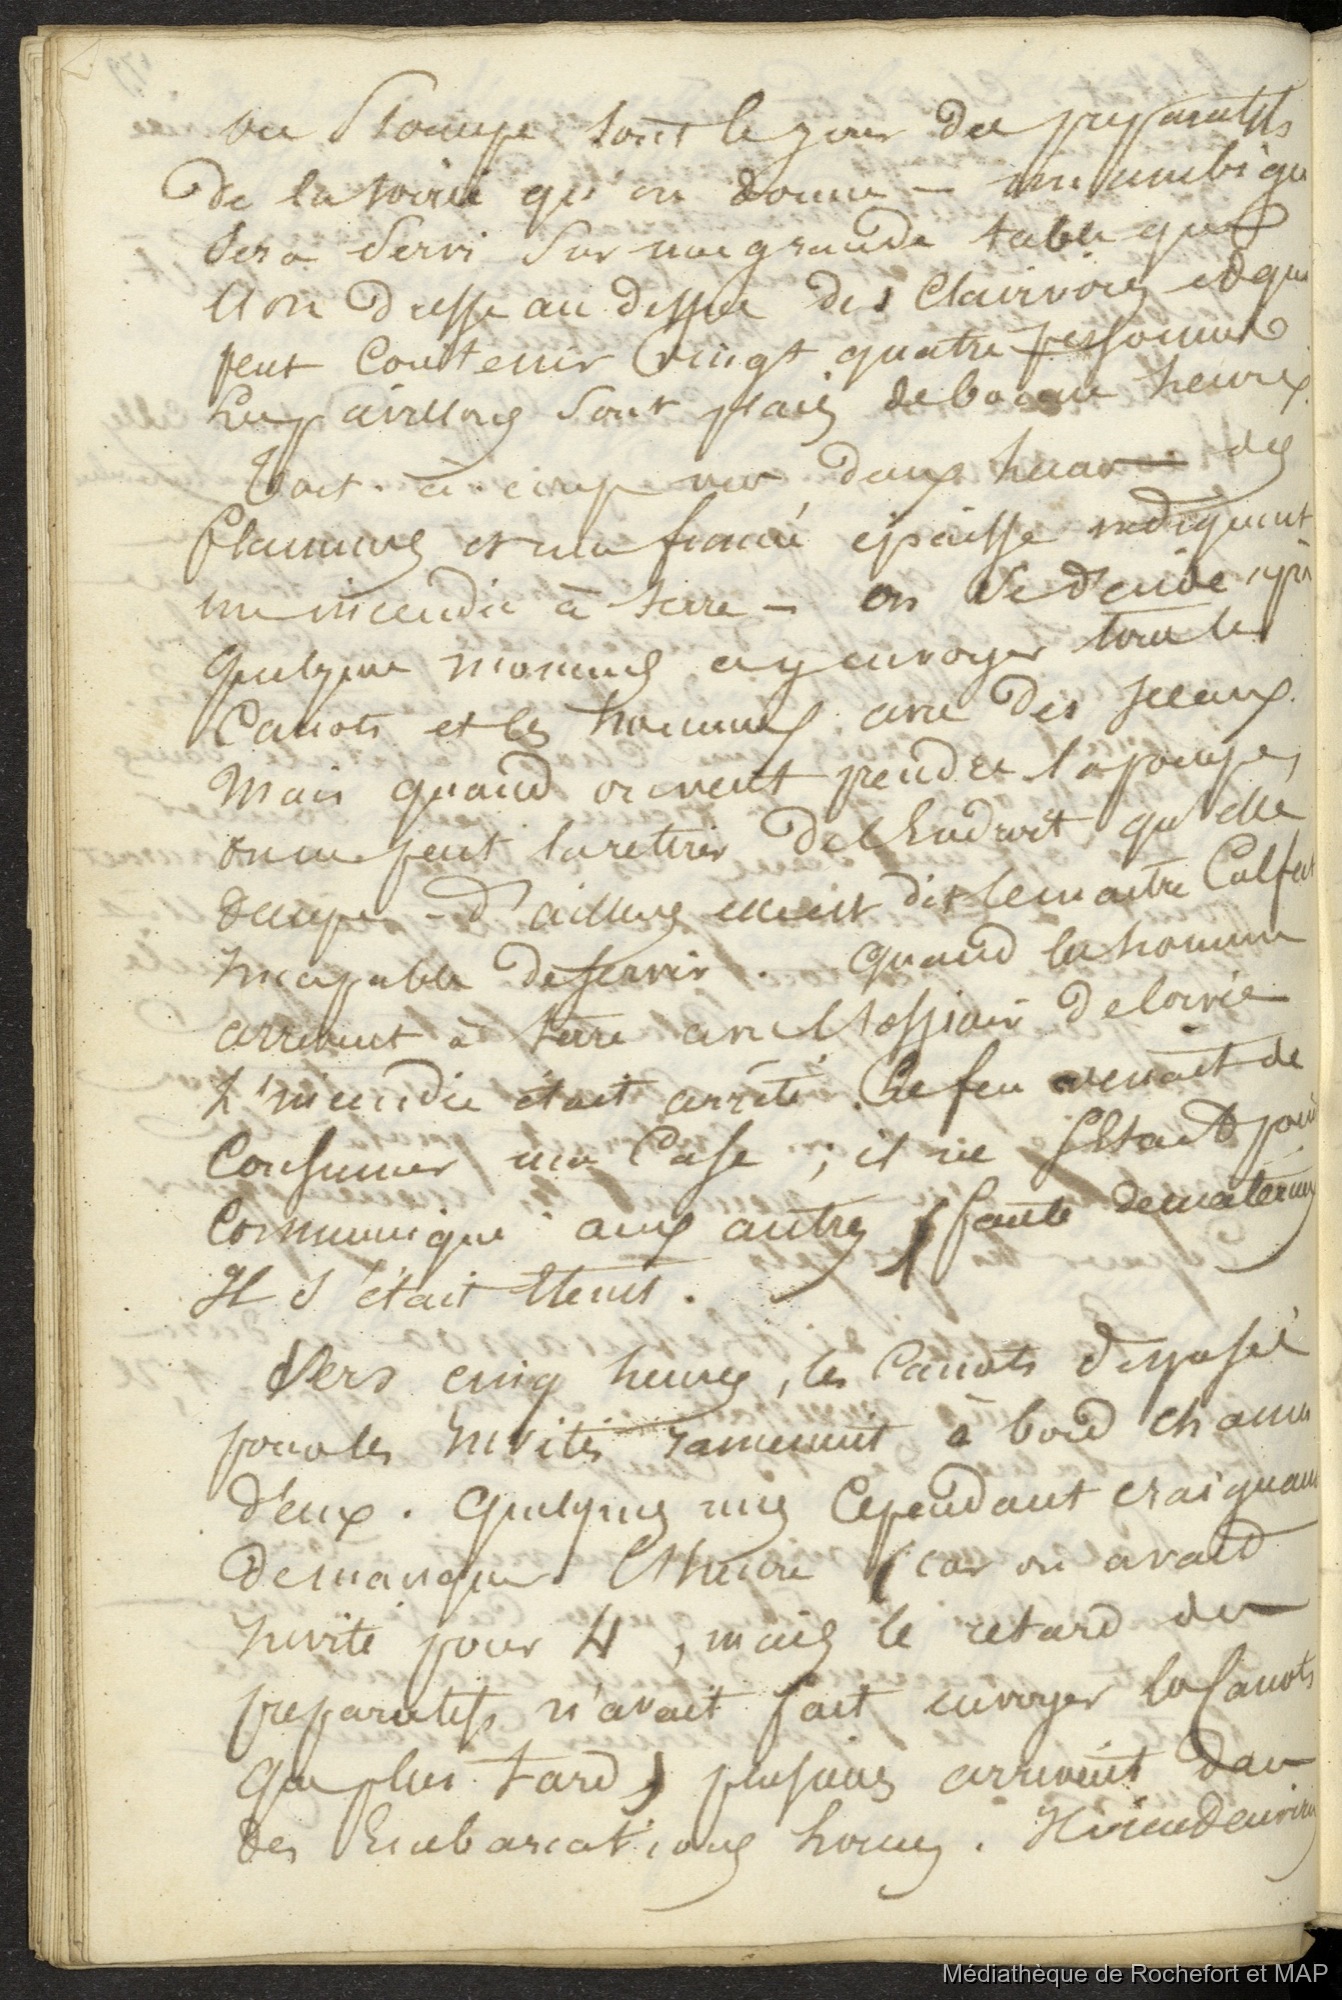 on s'occupe tout le jour des preparatifs
de la soirée qu'on donne – un ambigu
sera servi sur une grande table que
l'on dresse au dessus des Clairvoies et qui
peut Contenir vingt quatre personnes
Les pavillons sont placés de bonne heure.
Tout-à-coup vers deux heures des
flammes et une fumée épaisse indiquent
un incendie à terre – on se décide après
quelques momens a y envoyer tous les
Canots et les hommes avec des seaux.
Mais quand on veut prendre la pompe,
on ne peut la retirer de l'Endroit qu'elle
occupe – d'ailleurs elle est dit le maitre Calfat
incapable de servir. quand les hommes
arrivent à terre avec l'aspirant de corvée
L'incendie était arrêté. Le feu venait de
Consumer une Case ; il ne s'était point
Communiqué aux autres & faute de materiaux
Il s'était Eteint.
Vers cinq heures, les Canots disposés
pour les invités ramenent à bord chacun
d'eux. Quelques uns Cependant craignant
de manquer l'heure (car on avait
invité pour 4, mais le retard des
preparatifs n'avait fait envoyer les Canots
que plus tard) plusieurs arrivent dans
des Embarcations